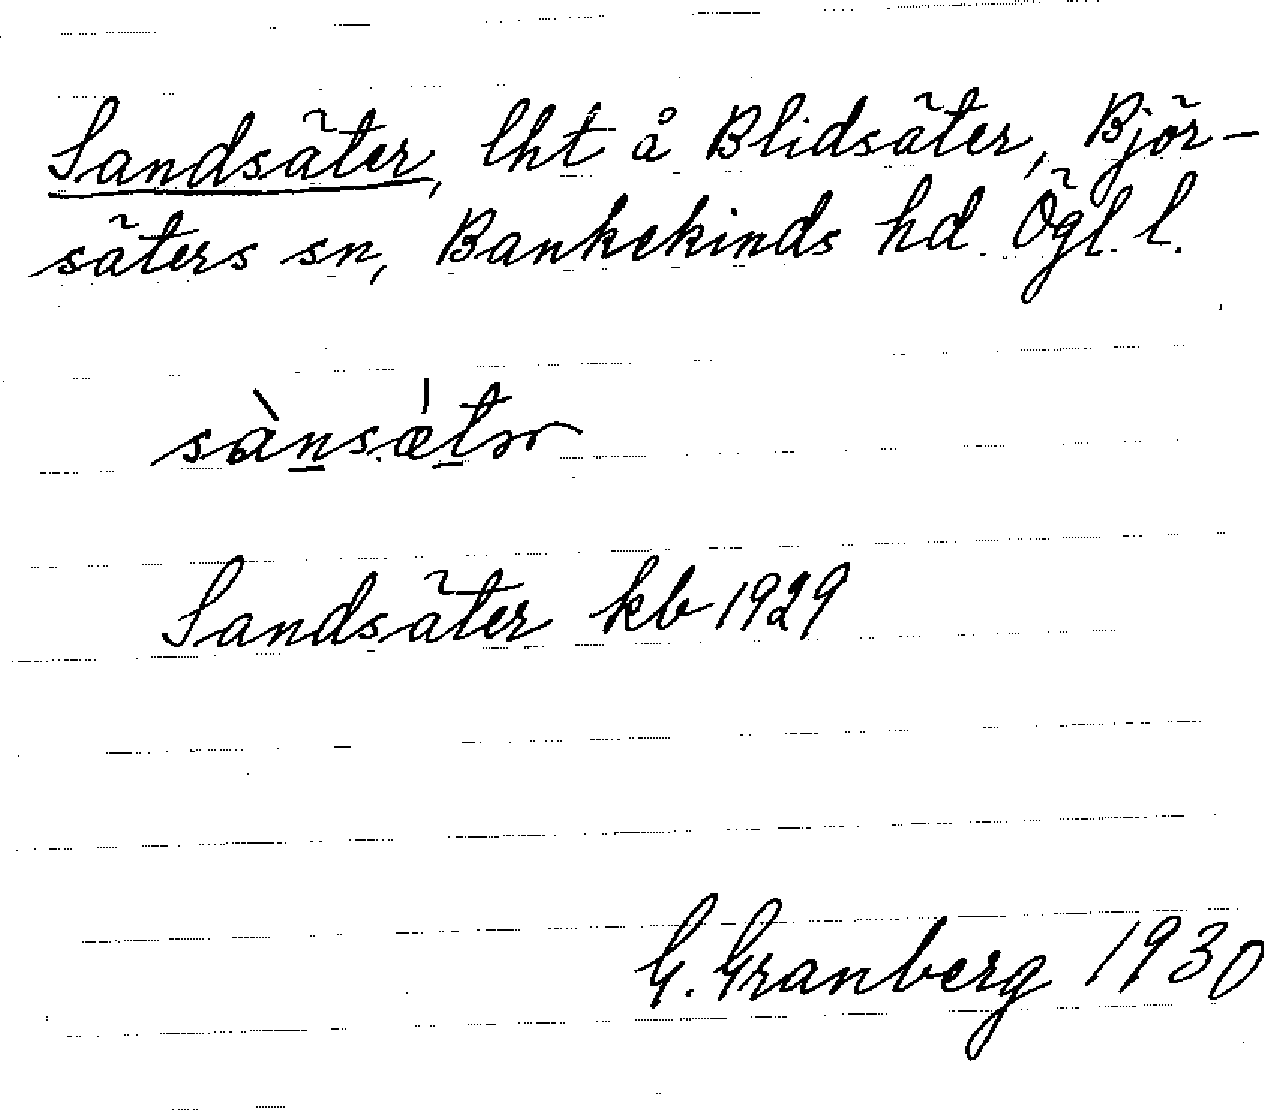 Sandsäter, lht å Blidsäter, Björ-
säters sn, Bankekinds hd Ögl. l.
sànsætər
Sandsäter kb 1929
G. Granberg 1930